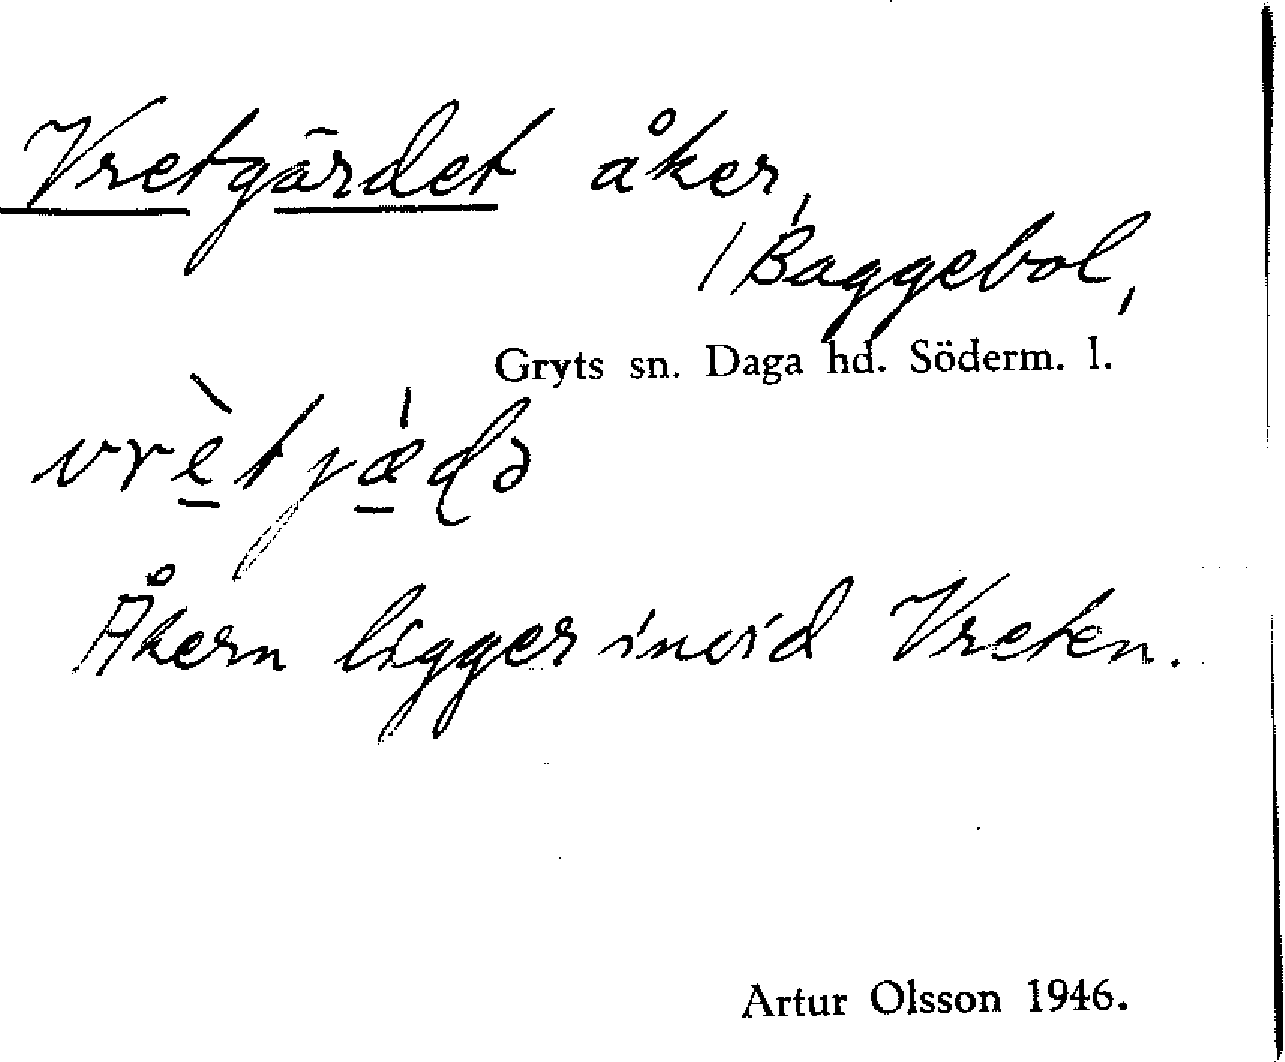 Vretgärdet åker,
/ Baggebol,
Gryts sn. Daga hd. Söderm. l.
vrè̱tjǽ̱ɖə
Åkern ligger invid Vreten.
Artur Olsson 1946.